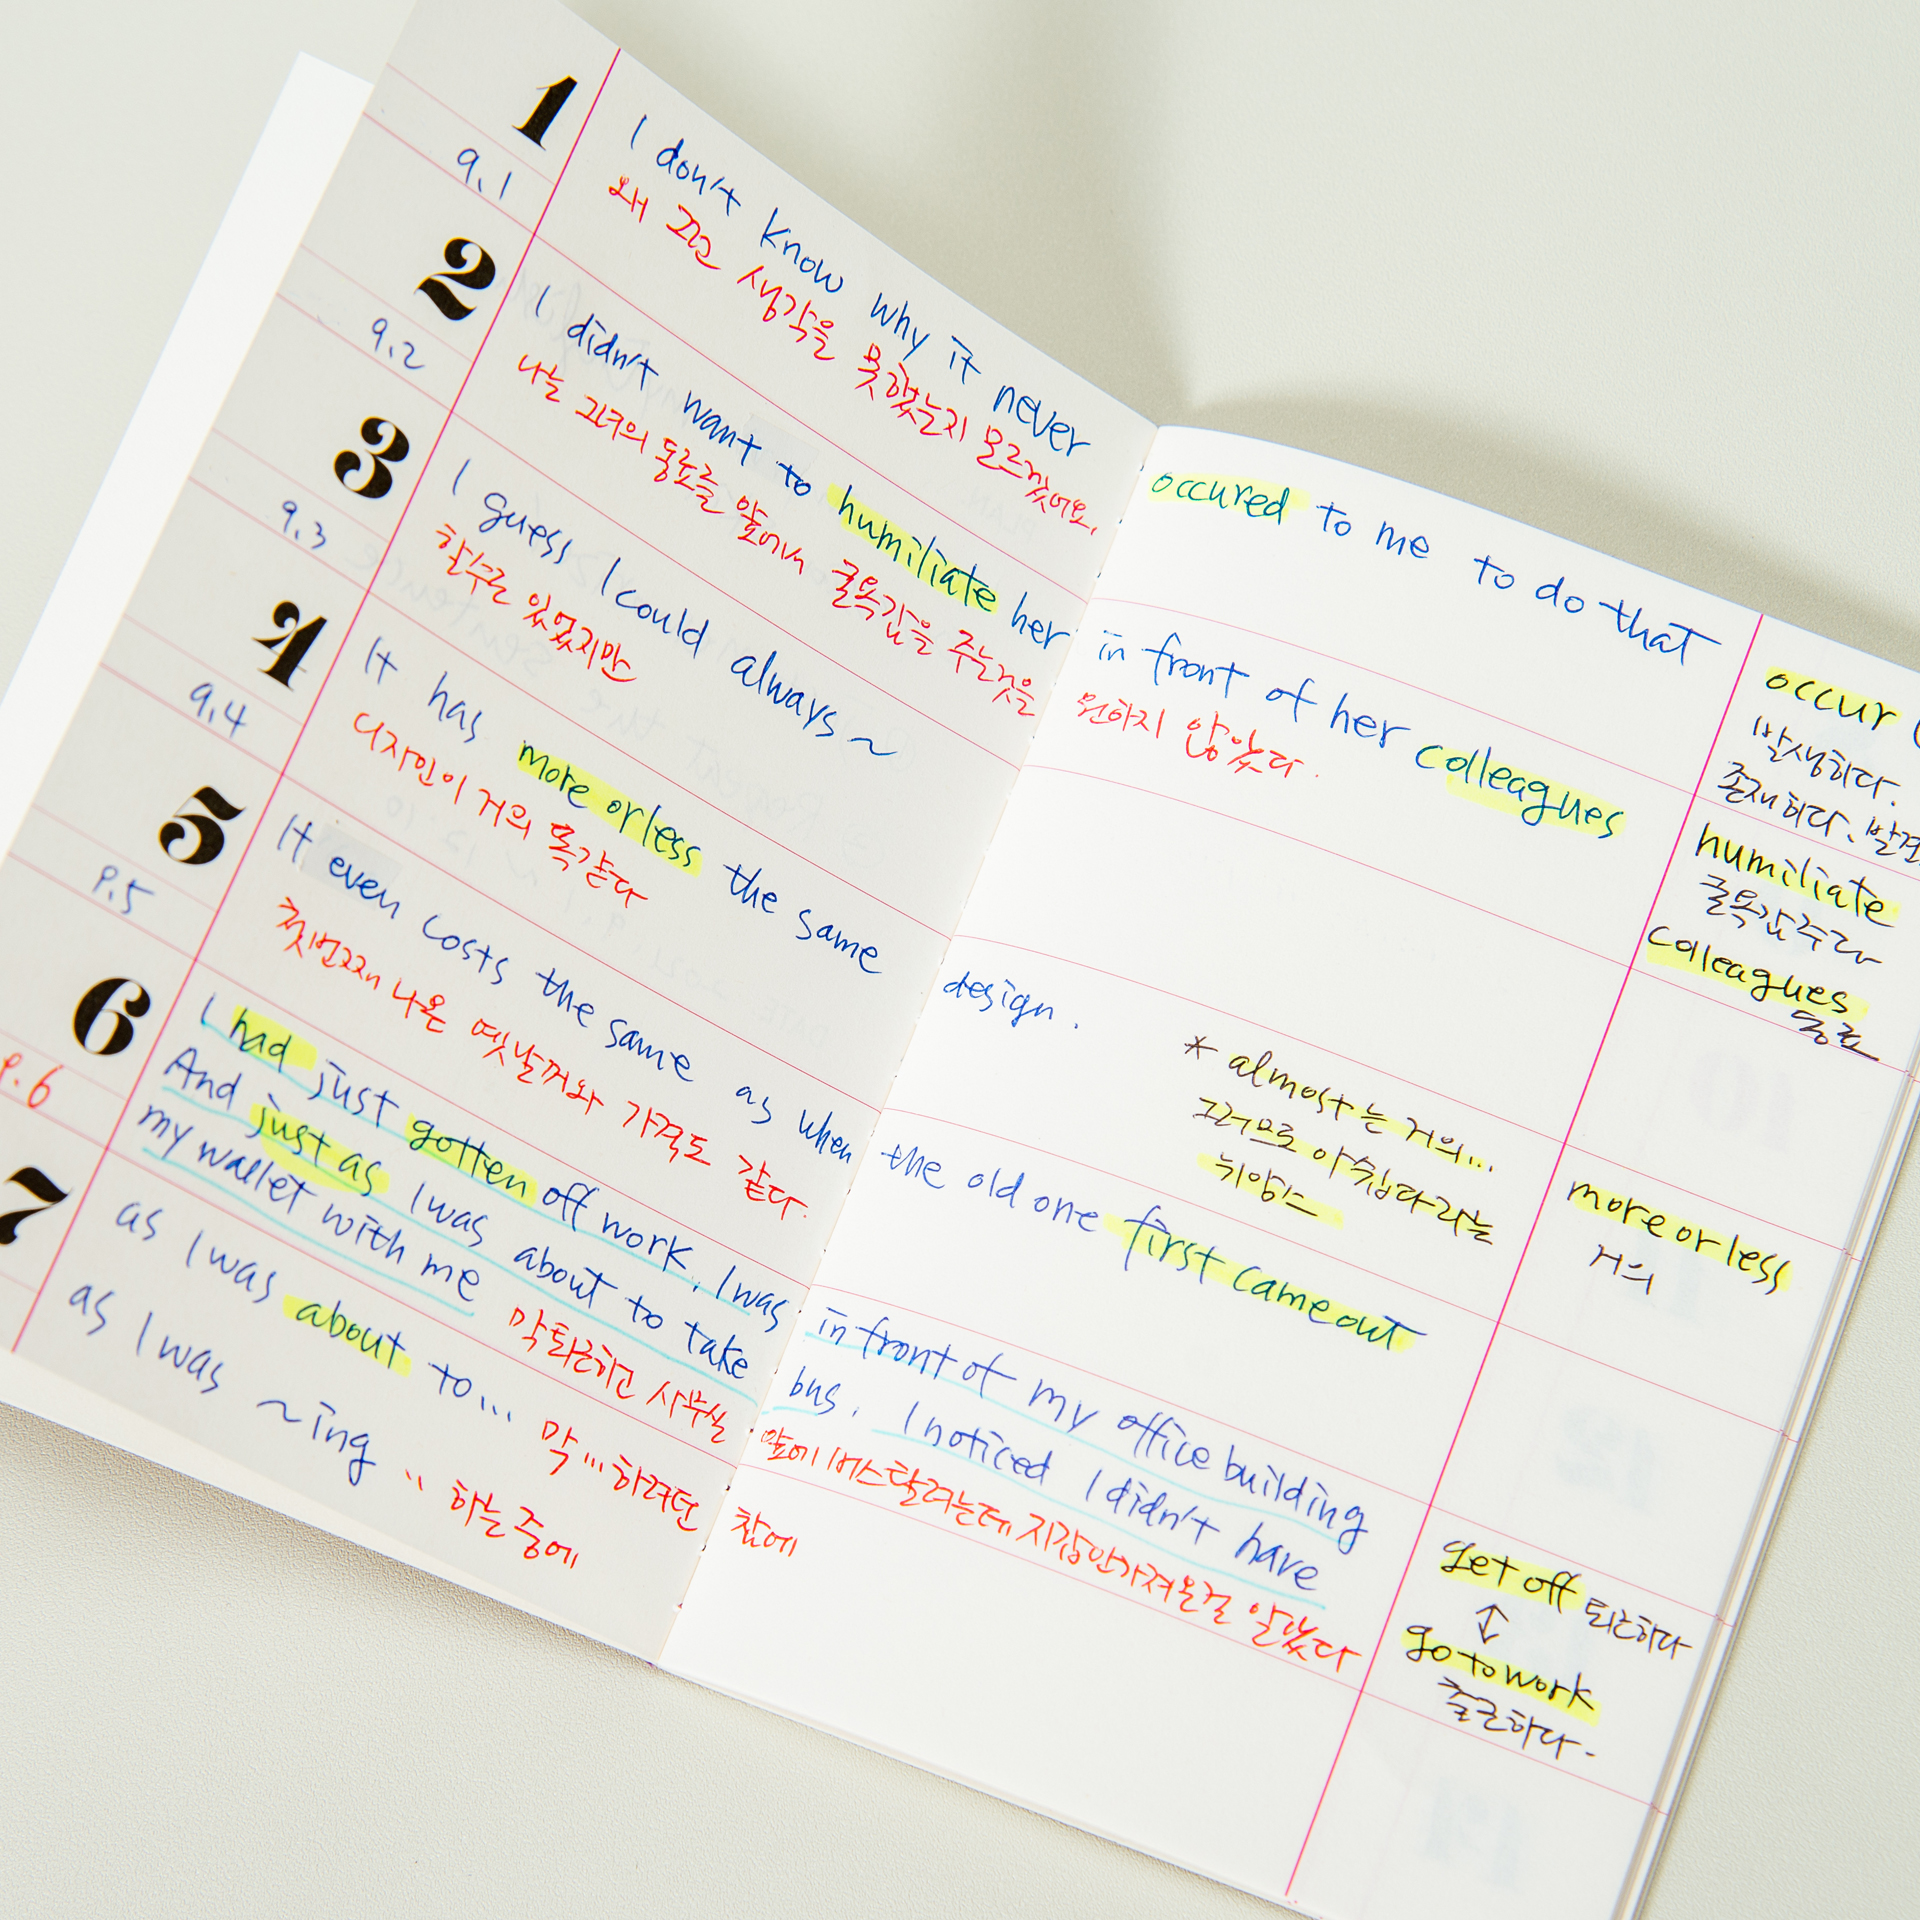 1
9.1
I don't know why it never occured to me to do that
왜 그런 생각을 못했는지 모르겠어요.
occur
발생하다.
존재하다. 발견
2
9.2
I didn't want to humiliate her in front of her colleagues
나는 그녀의 동료들 앞에서 굴욕감을 주는것을 원하지 않았다.
humiliate
굴욕감주다
colleagues
동료
3
9.3
I guess I could always ~
할수는 있었지만
4
9.4
It has more or less the same design.
디자인이 거의 똑같다
* almost는 거의...
그러므로 아쉽다라는
뉘앙스
more or less
거의
5
9.5
It even costs the same as when the old one first came out
첫번째 나온 옛날꺼와 가격도 같다.
6
9.6
I had just gotten off work. I was in front of my office building
And just as I was about to take bus. I noticed I didn't have
my wallet with me 막퇴근하고 사무실 앞에 버스탈려는데 지갑안가져온걸 알았다
get off 퇴근하다
↕
go to work
출근하다.
7
as I was about to... 막...하려던 찰에
as I was ~ing '' 하는중에